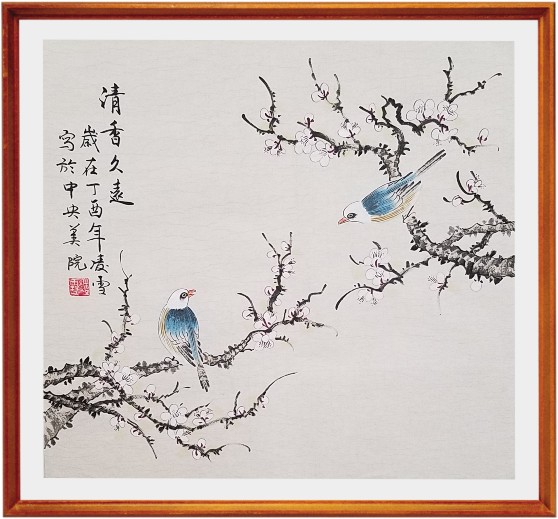 清香久遠
歲在丁酉年凌雪
寫於中央美院